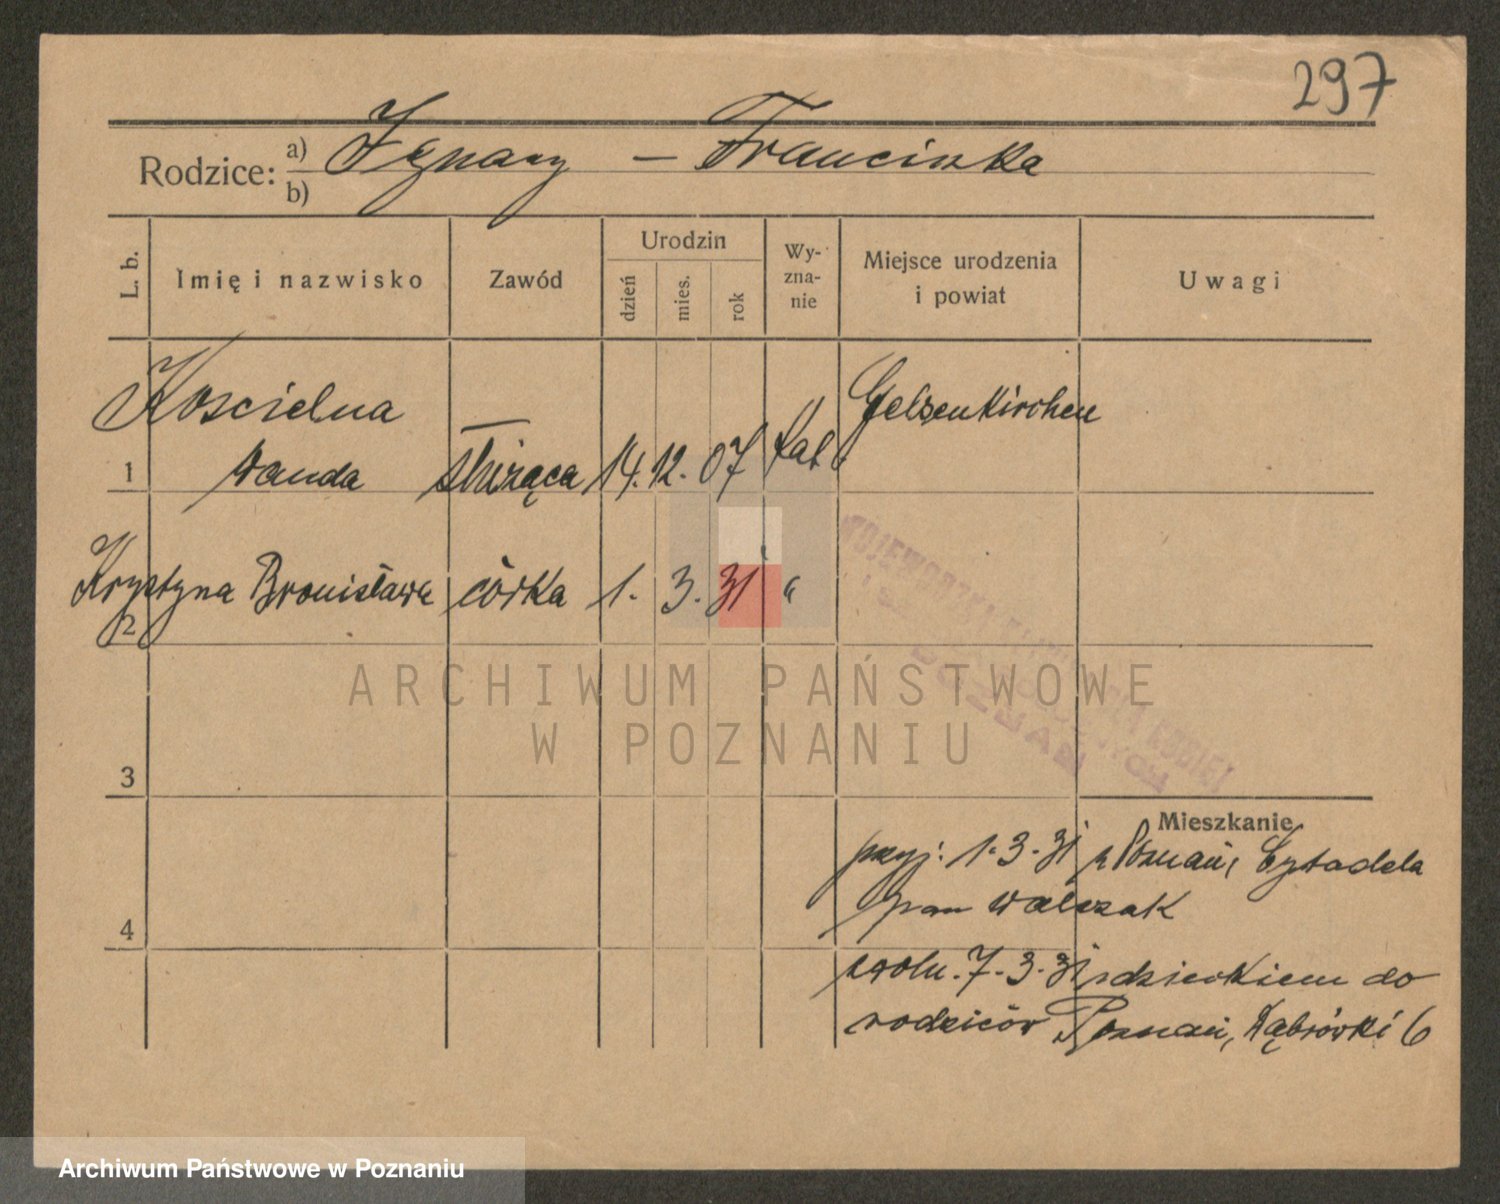 297
Rodzice: a) Ignacy – Franciszka
b)
L. b.
Imię i nazwisko
Zawód
Urodzin
dzień
mies.
rok
Wy-
zna-
nie
Miejsce urodzenia
i powiat
Uwagi
Koscielna
1 Wanda służąca 14. 12. 07 kat. Gelsenkirchen
2 Krystyna Bronisława córka 1. 3. 31 "
ARCHIWUM PAŃSTWOWE
W POZNANIU
3
Mieszkanie
przyj. 1.3.31 z Poznań, Cytadela
pan Walczak
4
zwoln. 7.3.31 z dzieckiem do
rodziców Poznań, Dąbrówki 6
Archiwum Państwowe w Poznaniu